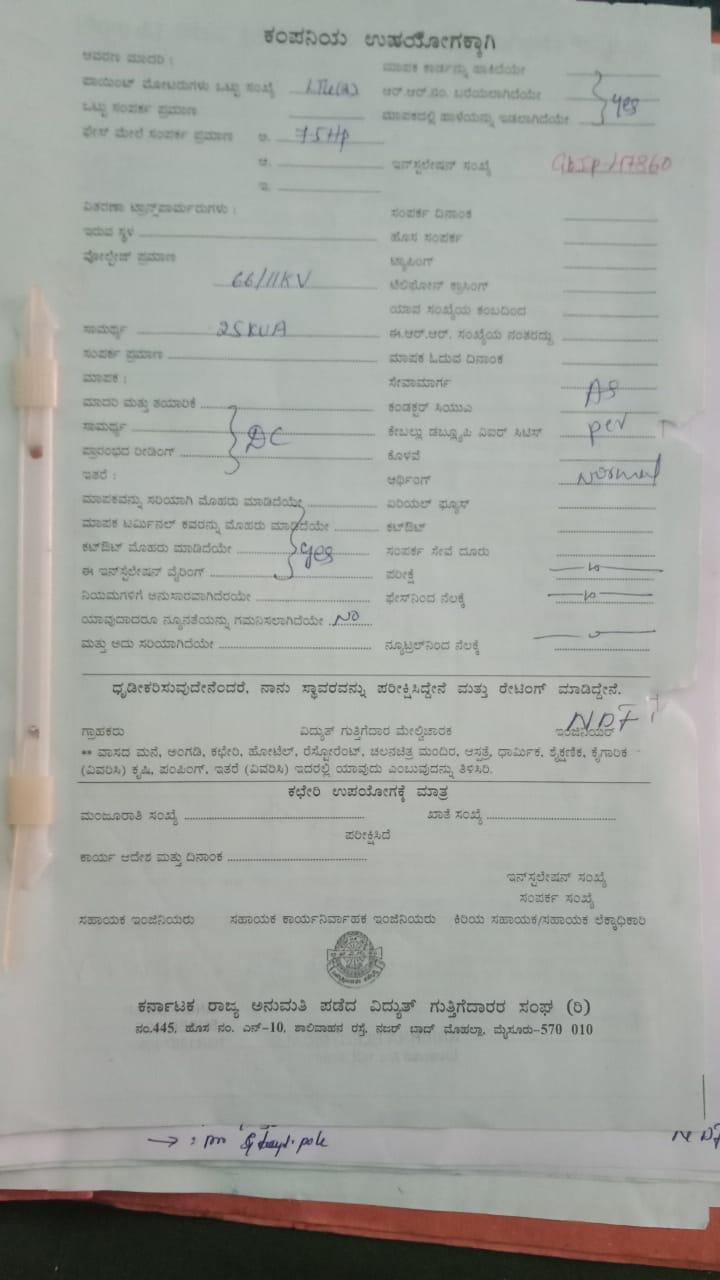 ಕಂಪನಿಯ ಉಪಯೋಗಕ್ಕಾಗಿ
ಆವರಣ ಮಾದರಿ :
ಮಾಪಕ ಕಾರ್ಡನ್ನು ಹಾಕಿದೆಯೇ
ಪಾಯಿಂಟ್ ಮೋಟರುಗಳು ಒಟ್ಟು ಸಂಖ್ಯೆ
ಆರ್.ಆರ್.ನಂ. ಬರೆಯಲಾಗಿದೆಯೇ yes
ಒಟ್ಟು ಸಂಪರ್ಕ ಪ್ರಮಾಣ
ಮಾಪಕದಲ್ಲಿ ಹಾಳೆಯನ್ನು ಇಡಲಾಗಿದೆಯೇ
ಫೇಸ್ ಮೇಲೆ ಸಂಪರ್ಕ ಪ್ರಮಾಣ ಅ. 7.5Hp
ಆ. ಇನ್‌ಸ್ಟಲೇಷನ್ ಸಂಖ್ಯೆ
ಇ.
ವಿತರಣಾ ಟ್ರಾನ್ಸ್‌ಫಾರ್ಮರುಗಳು :
ಸಂಪರ್ಕ ದಿನಾಂಕ
ಇರುವ ಸ್ಥಳ
ಹೊಸ ಸಂಪರ್ಕ
ವೋಲ್ಟೇಜ್ ಪ್ರಮಾಣ
ಟ್ಯಾಪಿಂಗ್
66/11KV
ಟೆಲಿಫೋನ್ ಕ್ರಾಸಿಂಗ್
ಯಾವ ಸಂಖ್ಯೆಯ ಕಂಬದಿಂದ
ಸಾಮರ್ಥ್ಯ 25KVA
ಈ.ಆರ್.ಆರ್. ಸಂಖ್ಯೆಯ ನಂತರದ್ದು
ಸಂಪರ್ಕ ಪ್ರಮಾಣ
ಮಾಪಕ ಓದುವ ದಿನಾಂಕ
ಮಾಪಕ :
ಸೇವಾಮಾರ್ಗ As
ಮಾದರಿ ಮತ್ತು ತಯಾರಿಕೆ
ಕಂಡಕ್ಟರ್ ಸಿಯುಎ
ಸಾಮರ್ಥ್ಯ DC
ಕೇಬಲ್ಲು ಡಬ್ಲ್ಯೂಪಿ ವಿಐಆರ್ ಸಿಟಿಸ್ per
ಪ್ರಾರಂಭದ ರೀಡಿಂಗ್
ಕೊಳವೆ
ಇತರೆ :
ಅರ್ಥಿಂಗ್ Normal
ಮಾಪಕವನ್ನು ಸರಿಯಾಗಿ ಮೊಹರು ಮಾಡಿದೆಯೇ
ಏರಿಯಲ್ ಫ್ಯೂಸ್
ಮಾಪಕ ಟರ್ಮಿನಲ್ ಕವರನ್ನು ಮೊಹರು ಮಾಡಿದೆಯೇ
ಕಟ್‌ಔಟ್
ಕಟ್‌ಔಟ್ ಮೊಹರು ಮಾಡಿದೆಯೇ yes
ಸಂಪರ್ಕ ಸೇವೆ ದೂರು
ಈ ಇನ್‌ಸ್ಟಲೇಷನ್ ವೈರಿಂಗ್
ಪರೀಕ್ಷೆ
ನಿಯಮಗಳಿಗೆ ಅನುಸಾರವಾಗಿದೆರಯೇ
ಫೇಸ್‌ನಿಂದ ನೆಲಕ್ಕೆ
ಯಾವುದಾದರೂ ನ್ಯೂನತೆಯನ್ನು ಗಮನಿಸಲಾಗಿದೆಯೇ No
ಮತ್ತು ಅದು ಸರಿಯಾಗಿದೆಯೇ
ನ್ಯೂಟ್ರಲ್‌ನಿಂದ ನೆಲಕ್ಕೆ
ಧೃಡೀಕರಿಸುವುದೇನೆಂದರೆ, ನಾನು ಸ್ಥಾವರವನ್ನು ಪರೀಕ್ಷಿಸಿದ್ದೇನೆ ಮತ್ತು ರೇಟಿಂಗ್ ಮಾಡಿದ್ದೇನೆ.
ಗ್ರಾಹಕರು ವಿದ್ಯುತ್ ಗುತ್ತಿಗೆದಾರ ಮೇಲ್ವಿಚಾರಕ ಇಂಜಿನಿಯರ್
** ವಾಸದ ಮನೆ, ಅಂಗಡಿ, ಕಛೇರಿ, ಹೋಟೆಲ್, ರೆಸ್ಟೋರೆಂಟ್, ಚಲನಚಿತ್ರ ಮಂದಿರ, ಆಸ್ಪತ್ರೆ, ಧಾರ್ಮಿಕ, ಶೈಕ್ಷಣಿಕ, ಕೈಗಾರಿಕ
(ವಿವರಿಸಿ) ಕೃಷಿ, ಪಂಪಿಂಗ್, ಇತರೆ (ವಿವರಿಸಿ) ಇದರಲ್ಲಿ ಯಾವುದು ಎಂಬುವುದನ್ನು ತಿಳಿಸಿರಿ.
ಕಛೇರಿ ಉಪಯೋಗಕ್ಕೆ ಮಾತ್ರ
ಮಂಜೂರಾತಿ ಸಂಖ್ಯೆ ಖಾತೆ ಸಂಖ್ಯೆ
ಪರೀಕ್ಷಿಸಿದೆ
ಕಾರ್ಯ ಆದೇಶ ಮತ್ತು ದಿನಾಂಕ
ಇನ್‌ಸ್ಟಲೇಷನ್ ಸಂಖ್ಯೆ
ಸಂಪರ್ಕ ಸಂಖ್ಯೆ
ಸಹಾಯಕ ಇಂಜಿನಿಯರು ಸಹಾಯಕ ಕಾರ್ಯನಿರ್ವಾಹಕ ಇಂಜಿನಿಯರು ಕಿರಿಯ ಸಹಾಯಕ/ಸಹಾಯಕ ಲೆಕ್ಕಾಧಿಕಾರಿ
ಕರ್ನಾಟಕ ರಾಜ್ಯ ಅನುಮತಿ ಪಡೆದ ವಿದ್ಯುತ್ ಗುತ್ತಿಗೆದಾರರ ಸಂಘ (ರಿ)
ನಂ.445, ಹೊಸ ನಂ. ಎನ್-10, ಶಾಲಿವಾಹನ ರಸ್ತೆ, ನಜರ್ ಬಾದ್ ಮೊಹಲ್ಲಾ, ಮೈಸೂರು-570 010
pole